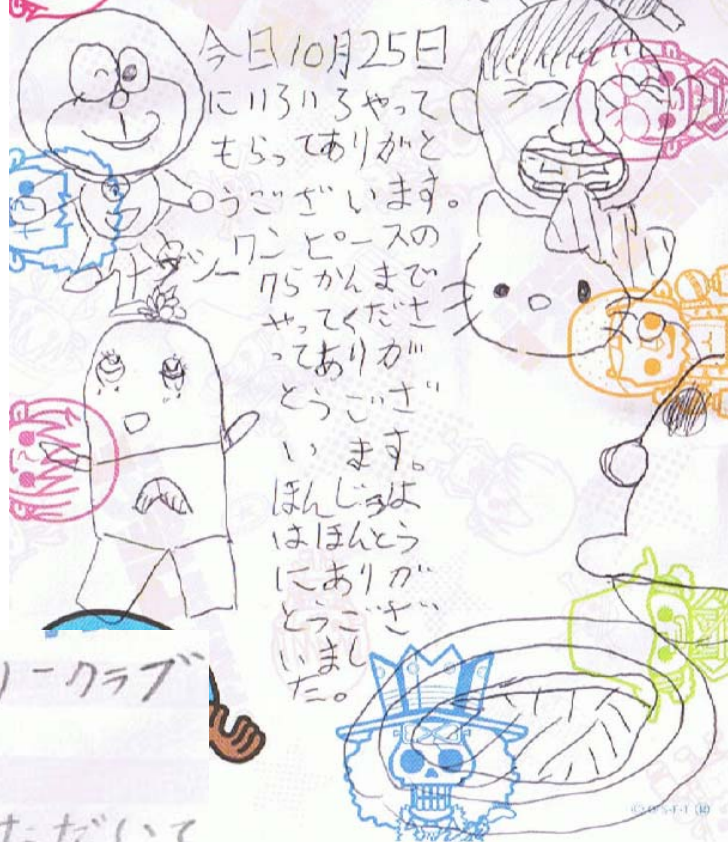 今日10月25日
にいろいろやって
もらってありがと
うございます。
ワンピースの
75かんまで
やってくださ
ってありが
とうござ
います。
ほんじつは
はほんとう
にありが
とうござ
いまし
た。
ナッシー
リークラブ
ただいて